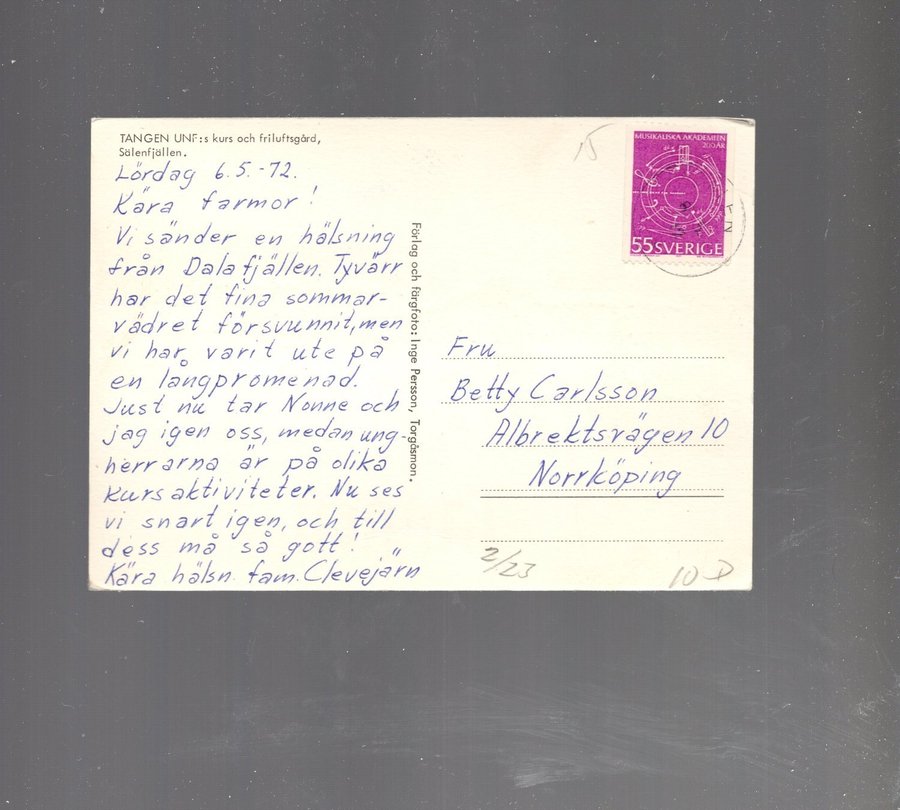 TANGEN UNF:s kurs och friluftsgård,
Sälenfjällen.
Lördag 6.5.-72.
Kära farmor!
Vi sänder en hälsning
från Dalafjällen. Tyvärr
har det fina sommar-
vädret försvunnit, men
vi har varit ute på
en långpromenad.
Just nu tar Nonne och
jag igen oss, medan ung-
herrarna är på olika
kursaktiviteter. Nu ses
vi snart igen, och till
dess må så gott!
Kära hälsn. fam. Clevejärn
Förlag och färgfoto: Inge Persson, Torgåsmon.
15
MUSIKALISKA AKADEMIEN
200 ÅR
55 SVERIGE
Fru
Betty Carlsson
Albrektsvägen 10
Norrköping
2/23
10